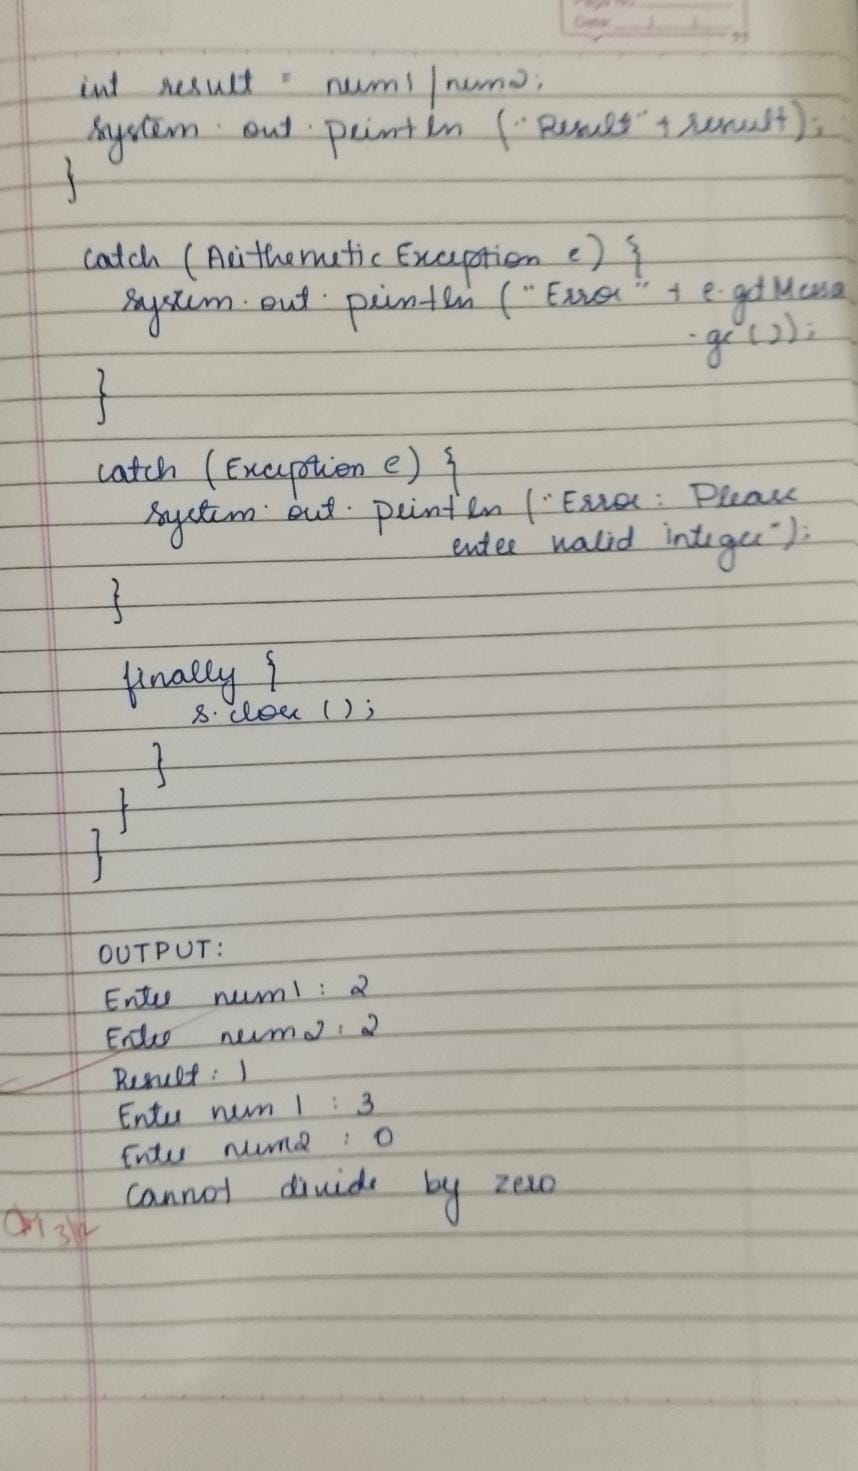 Date:
int result = num1/num2;
System.out.println ("Result" + result);
}
catch (Arithemetic Exception e) {
System.out.println ("Error" + e.getMessa
.ge());
}
catch (Exception e) {
System.out.println ("Error: Please
enter valid integer");
}
finally {
s.close ();
}
}
}
OUTPUT:
Enter num1 : 2
Enter num2 : 2
Result : 1
Enter num 1 : 3
Enter num2 : 0
Cannot divide by zero